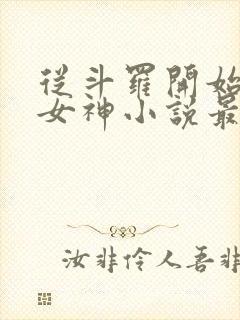 從斗羅開始
女神小說最
汝非伶人吾非